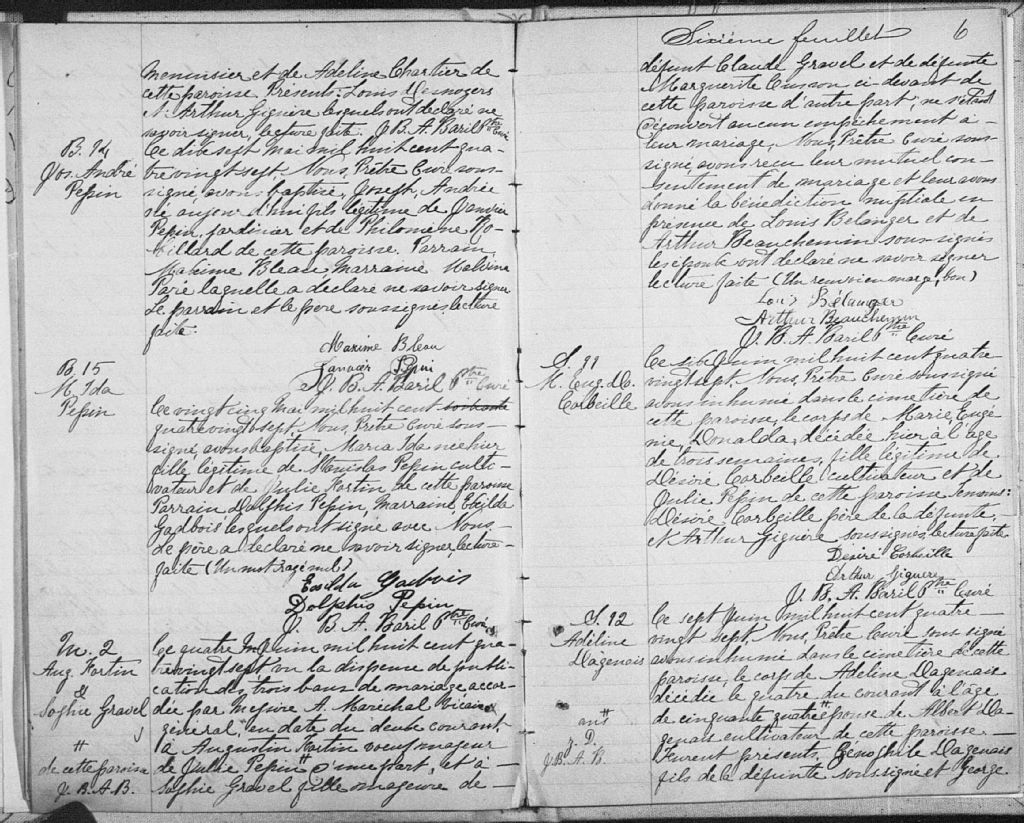 menuisier et de Adeline Chartier de
cette paroisse. Présents: Louis Desnoyers
et Arthur Giguère lesquels ont déclaré ne
savoir signer, lecture faite. J. B. A. Baril Ptre Curé
B. 14
Jos. André
Pepin
Ce dix sept Mai mil huit cent qua-
tre vingt sept. Nous, Prêtre Curé sous-
signé, avons baptisé, Joseph, Andrée
né aujourd'hui fils légitime de Janvier
Pepin, jardinier et de Philomène Ro-
billard de cette paroisse. Parrain
Maxime Bleau, marraine Malvina
Paré laquelle a déclaré ne savoir signer
Le parrain et le père soussignés, lecture
faite.
Maxime Bleau
Janvier Pepin
J. B. A. Baril Ptre Curé
B. 15
M. Ida
Pepin
Ce vingt cinq Mai mil huit cent soixante
quatre vingt sept. Nous, Prêtre Curé sous-
signé, avons baptisé, Maria Ida née hier
fille légitime de Stanislas Pepin culti-
vateur et de Julie Fortin de cette paroisse
Parrain Dolphis Pepin, Marraine, Exilda
Gadbois lesquels ont signé avec Nous-
Le père a déclaré ne savoir signer lecture-
faite (Un mot rayé nul)
Exilda Gadbois
Dolphis Pepin
J. B. A. Baril Ptre Curé
M. 2
Aug. Fortin
&
Sophie Gravel
"
de cette paroisse
J. B. A. B.
Ce quatre Juin mil huit cent qua-
tre vingt sept vu la dispense de publi-
cation des trois bans de mariage accor-
dée par Messire A. Maréchal Vicaire
général, en date du deux courant,
à Augustin Fortin veuf majeur
de Julie Pepin " d'une part, et à-
Sophie Gravel fille mageure de-
Sixième feuillet 6
défunt Claude Gravel et de défunte
Marguerite Cusson ci-devant de
cette paroisse d'autre part; ne s'étant
découvert aucun empêchement à-
leur mariage, Nous, Prêtre Curé sous-
signé, avons reçu leur mutuel con-
sentement de mariage et leur avons
donné la bénédiction nuptiale en
présence de Louis Belanger et de
Arthur Beauchemin soussignés
les époux ont déclaré ne savoir signer
lecture faite (Un renvoi en marge, bon)
Louis Bélanger
Arthur Beauchemin
J. B. A. Baril Ptre Curé
S. 11
M. Eug. Da.
Corbeille
Ce six Juin mil huit cent quatre
vingt sept. Nous, Prêtre Curé soussigné
avons inhumé dans le cimetière de
cette paroisse, le corps de Marie, Eugé
nie, Donalda, décédée hier à l'âge
de trois semaines, fille légitime de
Désiré Corbeille cultivateur et de
Julie Pepin de cette paroisse. Témoins:
Désiré Corbeille père de la défunte,
et Arthur Giguère soussignés, lecture faite
Desiré Corbeille
Arthur Giguere
J. B. A. Baril Ptre Curé
S. 12
Adéline
Dagenais
"
ans
J. B. A. B.
Ce sept Juin mil huit cent quatre-
vingt sept. Nous, Prêtre Curé sous-signé
avons inhumé dans le cimetière de cette
paroisse, le corps de Adeline Dagenais
décédée le quatre du courant à l'âge
de cinquante quatre " épouse de Albert Da-
genais cultivateur de cette paroisse-
Furent présents, Zénophile Dagenais
fils de la défunte soussigné et George